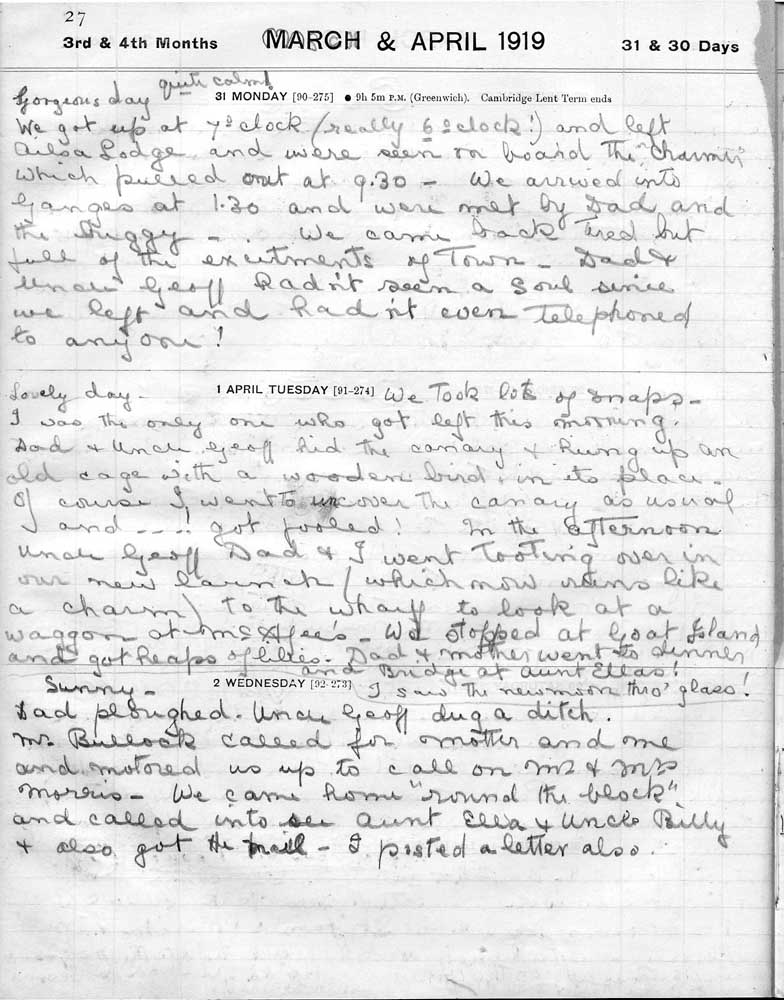 27
3rd & 4th Months MARCH & APRIL 1919 31 & 30 Days
quite calm!
Gorgeous day 31 MONDAY [90-275] ● 9h 5m P.M. (Greenwich). Cambridge Lent Term ends
We got up at 7 o'clock (really 6 o'clock!) and left
Ailsa Lodge and were seen on board the "Charmer"
which pulled out at 9.30 – We arrived into
Ganges at 1.30 and were met by Dad and
the Buggy – . We came back tired but
full of the excitments of Town – Dad &
Uncle Geoff hadn't seen a soul since
we left and hadn't even telephoned
to anyone!
Lovely day – 1 APRIL TUESDAY [91-274] We took lots of snaps –
I was the only one who got left this morning.
Dad & Uncle Geoff hid the canary & hung up an
old cage with a wooden bird in its place –
Of course I went to uncover the canary as usual
and – – – ! got fooled! In the afternoon
Uncle Geoff Dad & I went tooting over in
our new launch (which now runs like
a charm) to the wharf to look at a
waggon at McAfee's – We stopped at Goat Island
and got heaps of lilies. Dad & mother went to dinner
and Bridge at Aunt Ellas!
Sunny – 2 WEDNESDAY [92-273] I saw the new moon thro' glass!
Dad ploughed. Uncle Geoff dug a ditch.
Mr. Bullock called for mother and me
and motored us up to call on Mr & Mrs
Morris – We came home "round the block"
and called into see Aunt Ella & Uncle Billy
& also got the mail – I posted a letter also.